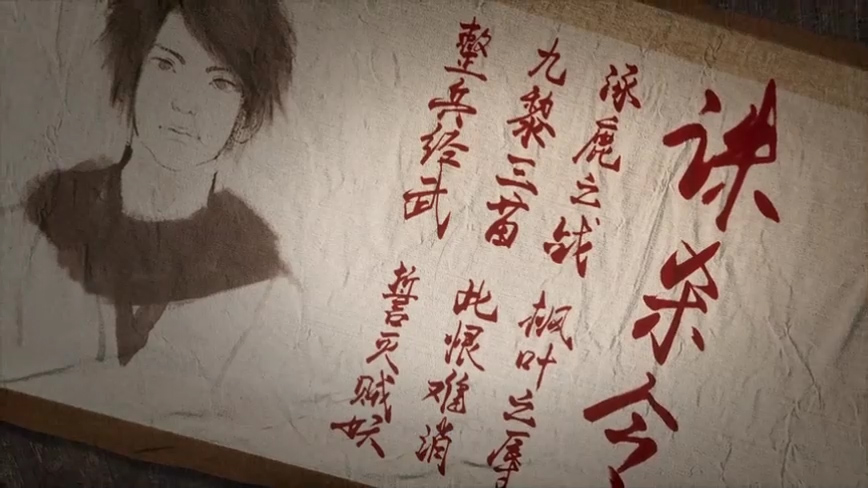 诛杀令
涿鹿之战 枫叶之辱
九黎三苗 此恨难消
整兵经武 誓灭贼妖